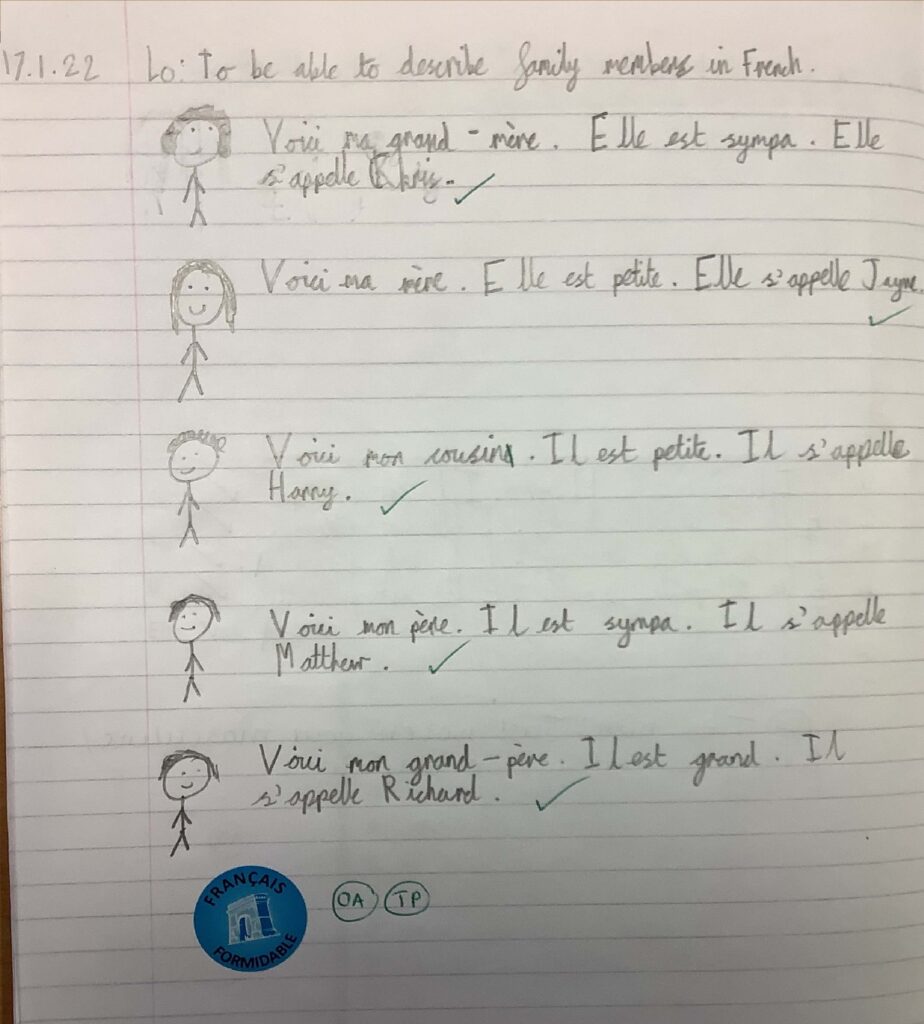 17.1.22 Lo: To be able to describe family members in French.
Voici ma grand-mère. Elle est sympa. Elle
s'appelle Khris.
Voici ma mère. Elle est petite. Elle s'appelle Jayne.
Voici mon cousin. Il est petite. Il s'appelle
Harry.
Voici mon père. Il est sympa. Il s'appelle
Matthew.
Voici mon grand-père. Il est grand. Il
s'appelle Richard.
FRANÇAIS
FORMIDABLE
OA TP